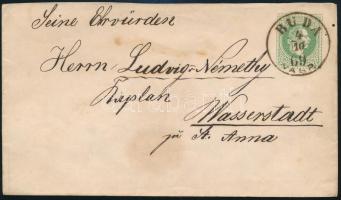 Seine Ehrwürden
Herrn Ludwig Némethy
Kaplan
Wasserstadt
zu St. Anna
BUDA
4/10
69